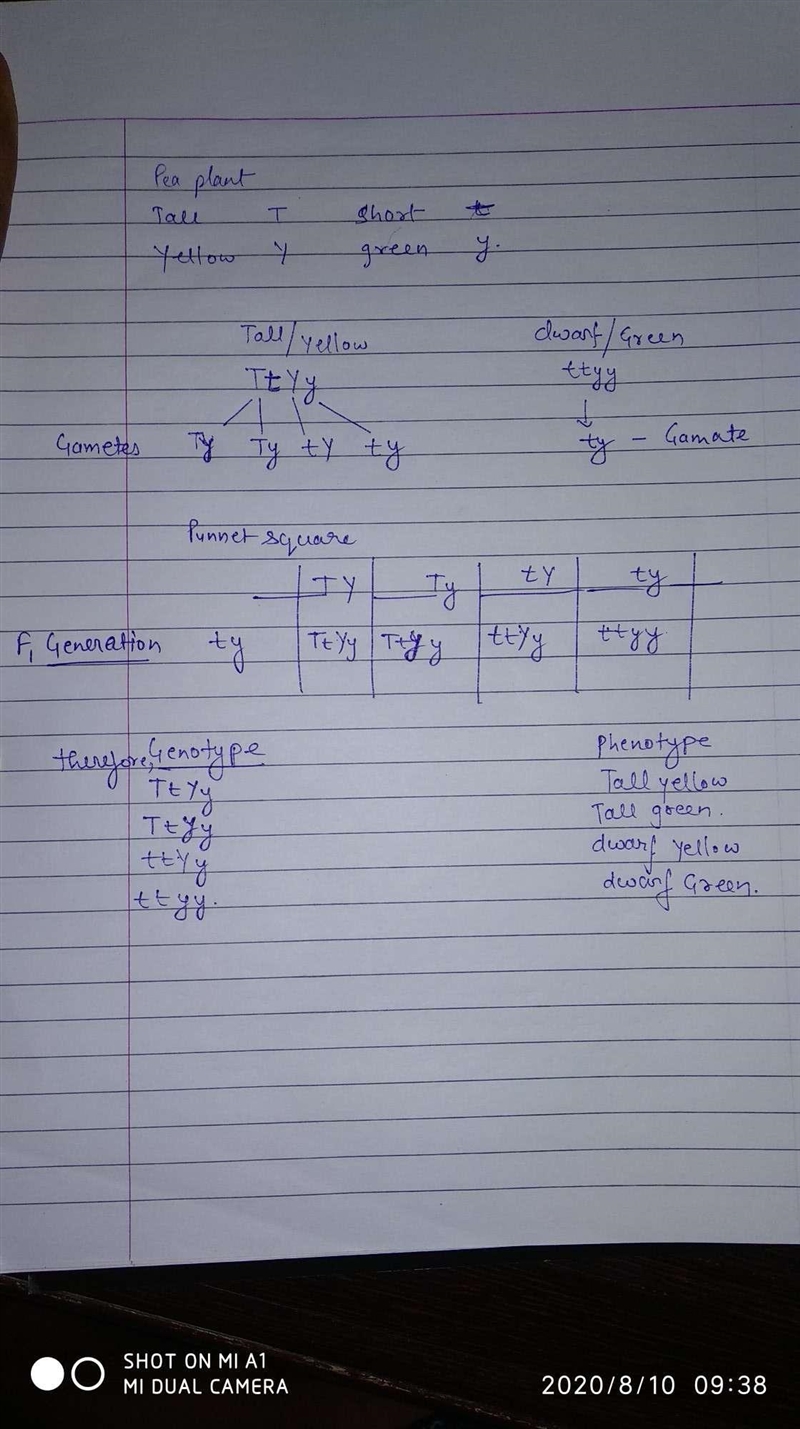 Pea plant
Tall T Short t
Yellow Y green y.
Tall/Yellow dwarf/Green
TtYy ttyy
Gametes TY Ty tY ty ty - Gamate
Punnet square
TY Ty tY ty
F1 Generation ty TtYy Ttyy ttYy ttyy
therefore, Genotype Phenotype
TtYy Tall yellow
Ttyy Tall green.
ttYy dwarf yellow
ttyy. dwarf Green.
SHOT ON MI A1
MI DUAL CAMERA
2020/8/10 09:38